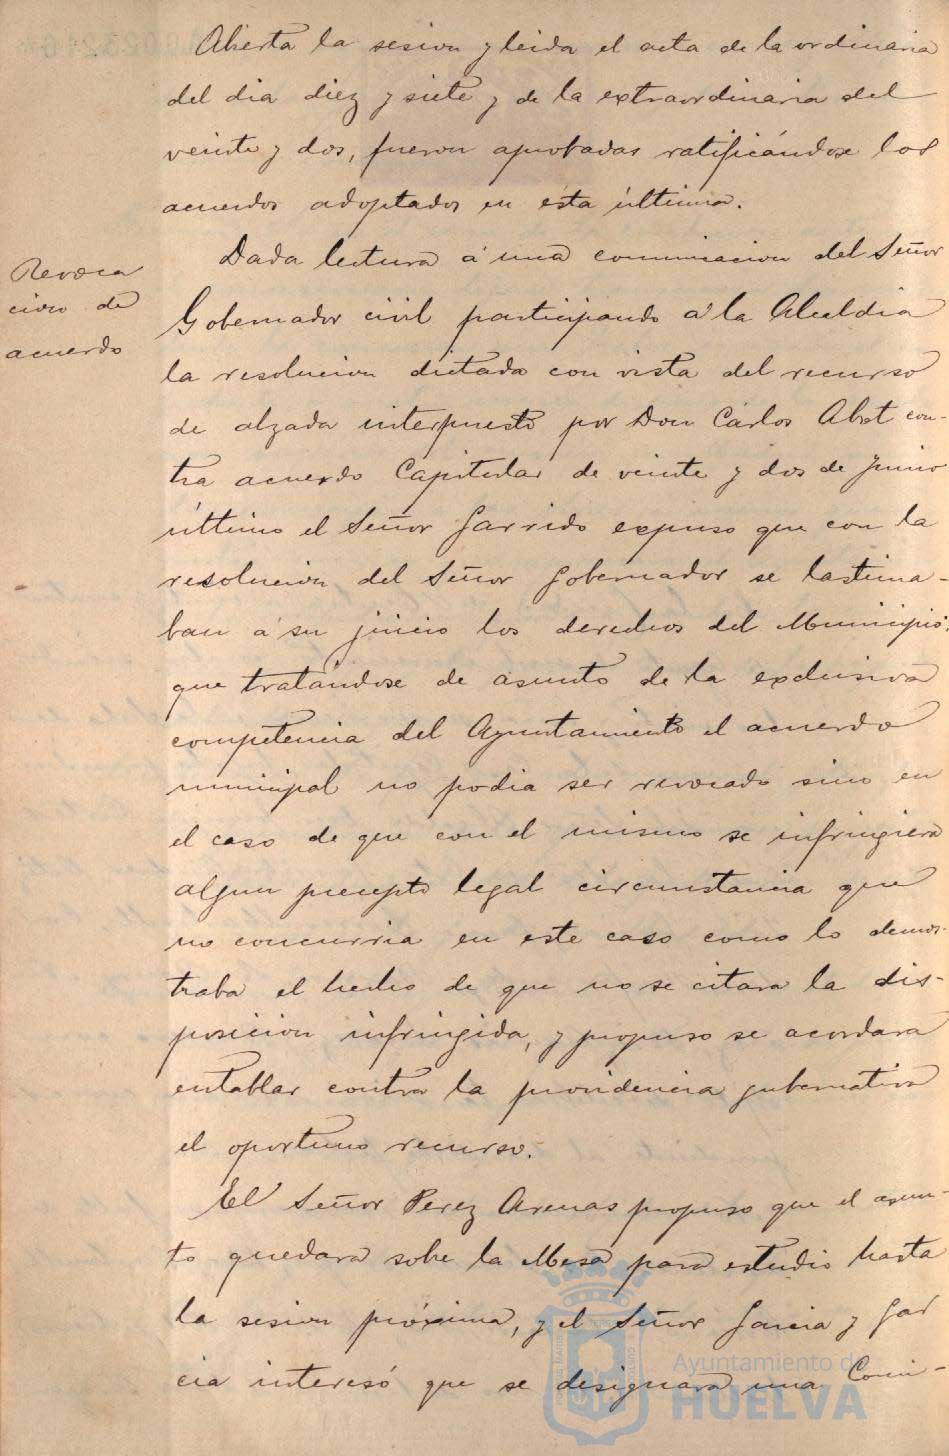 Abierta la sesion y leida el acta de la ordinaria
del dia diez y siete y de la extraordinaria del
veinte y dos, fueron aprobadas ratificándose los
acuerdos adoptados en ésta última.
Revoca
cion de
acuerdo
Dada lectura á una comunicacion del Señor
Gobernador civil participando á la Alcaldia
la resolucion dictada con vista del recurso
de alzada interpuesto por Don Cárlos Abat con-
tra acuerdo Capitular de veinte y dos de Junio
último el Señor Garrido expuso que con la
resolucion del Señor Gobernador se lastima-
ban á su juicio los derechos del Municipio,
que tratándose de asunto de la exclusiva
competencia del Ayuntamiento el acuerdo
municipal no podia ser revocado sino en
el caso de que con el mismo se infringiera
algun precepto legal circunstancia que
no concurria en este caso como lo demos-
traba el hecho de que no se citara la dis-
posicion infringida, y propuso se acordara
entablar contra la providencia gubernativa
el oportuno recurso.
El Señor Perez Arenas propuso que el asun-
to quedara sobre la Mesa para estudio hasta
la sesion próxima, y el Señor Garcia y Gar
cia interesó que se designara una Comi-
Ayuntamiento de
HUELVA